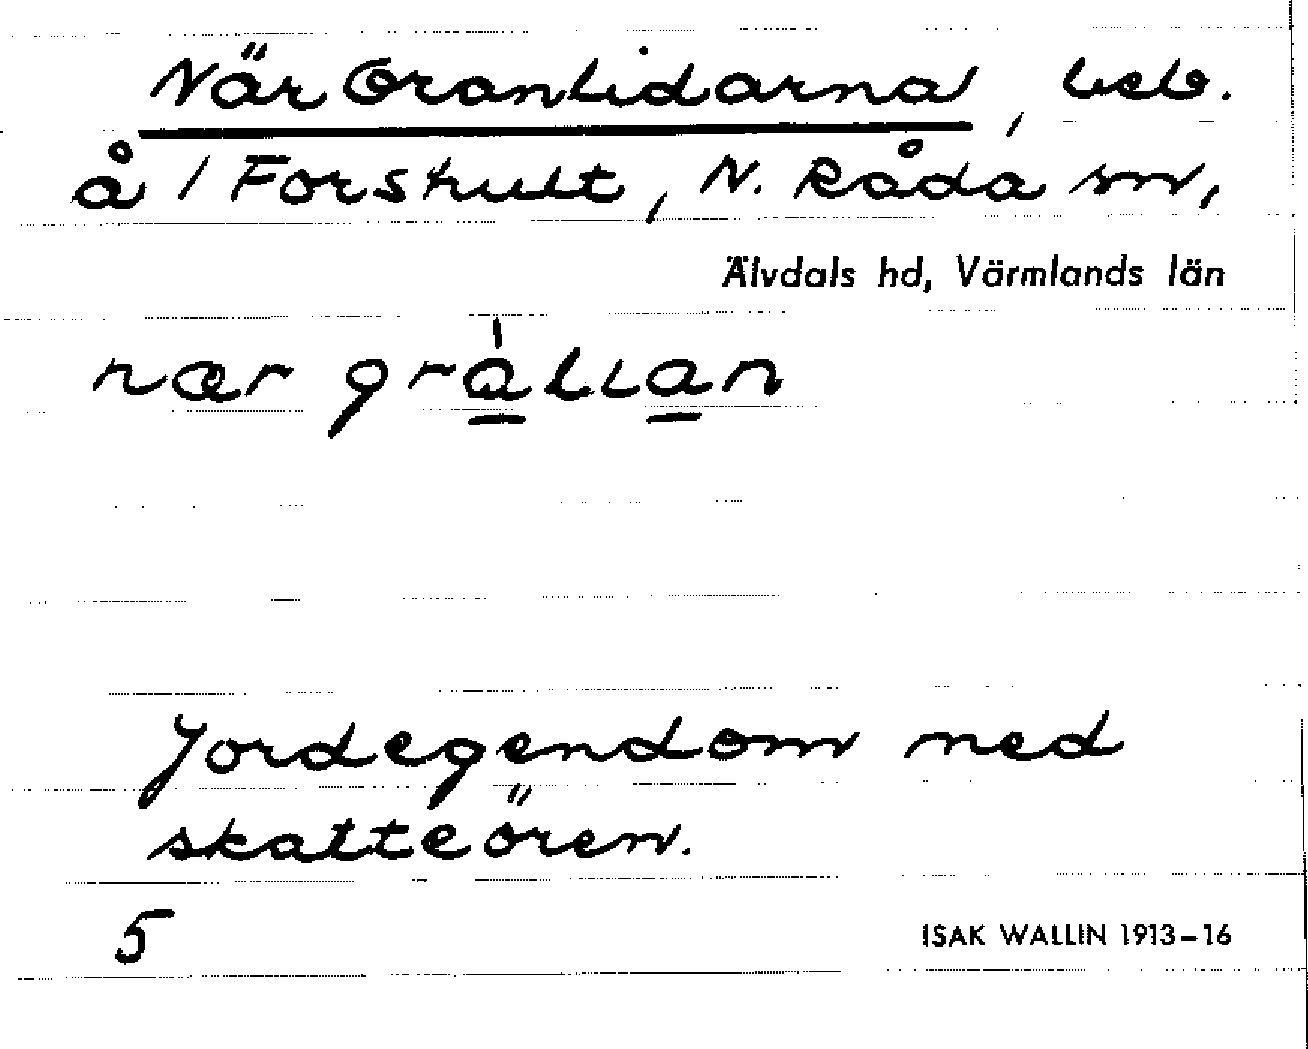 När Granlidarna, beb.
å / Forshult, N. Råda sn,
Älvdals hd, Värmlands län
nær gra̍lıan
Jordegendom med
skatteören.
5
ISAK WALLIN 1913–16